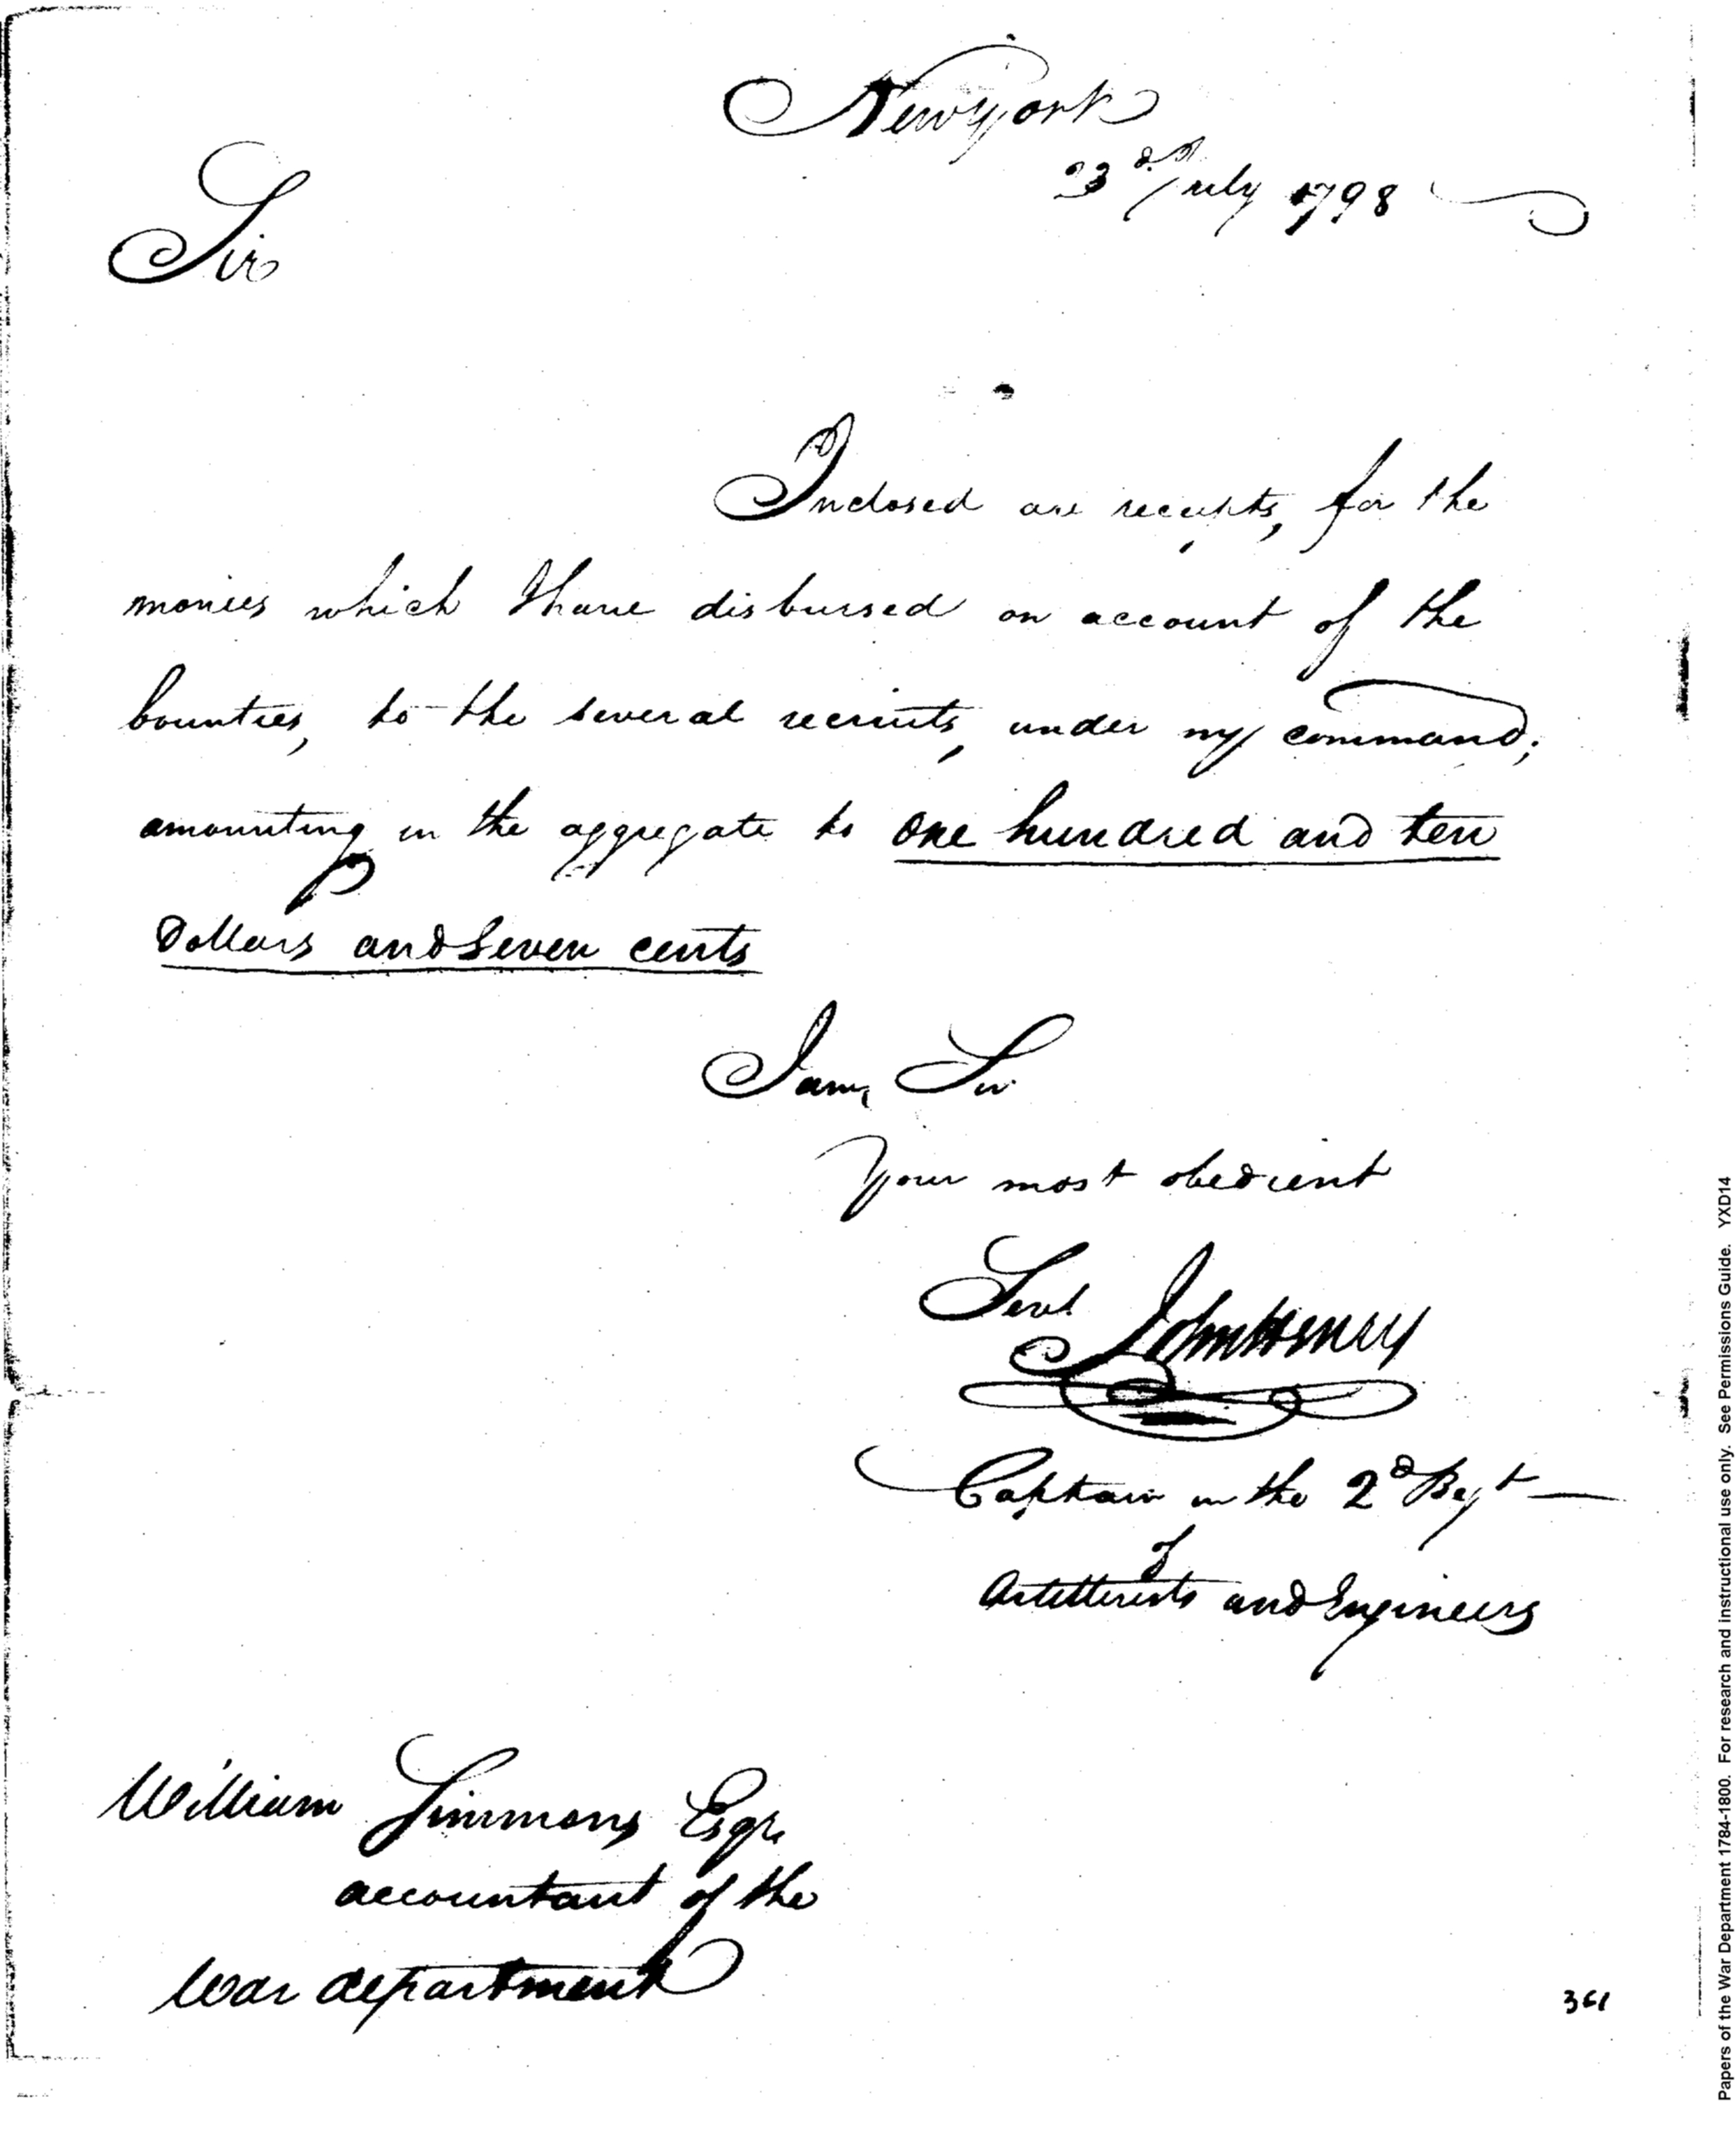 New york
23d July 1798
Sir
Inclosed are receipts, for the
monies which I have disbursed on account of the
bounties, to the several recruits, under my command;
amounting in the aggregate to one hundred and ten
Dollars and Seven cents
I am, Sir
Your most obedient
Servt John Henry
Captain in the 2d Regt
of
Artillerists and Engineers
William Simmons Esqr.
accountant of the
War department
361
Papers of the War Department 1784-1800. For research and instructional use only. See Permissions Guide. YXD14